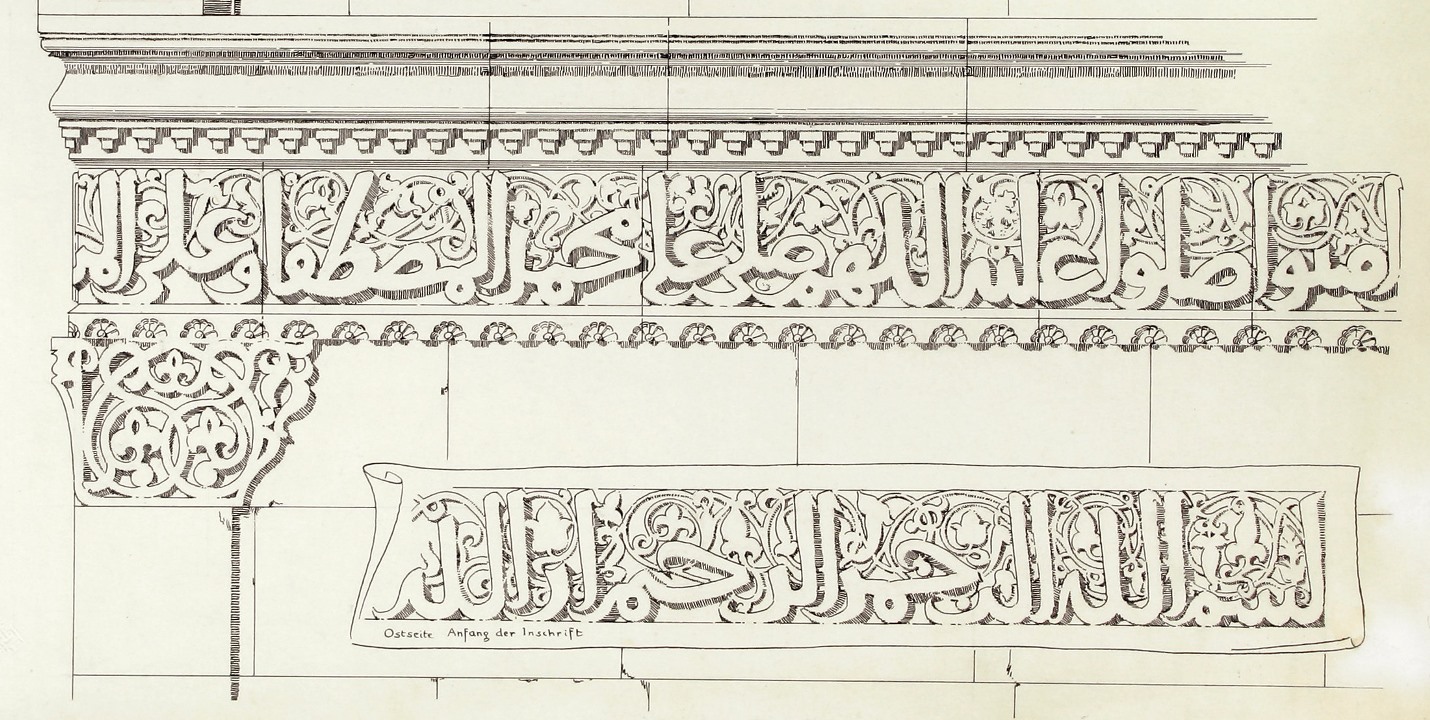 منو صلوا اللهم صل على محمد المصطفى وعلى المر
بسم الله الرحمن الرحيم ان الله
Ostseite Anfang der Inschrift